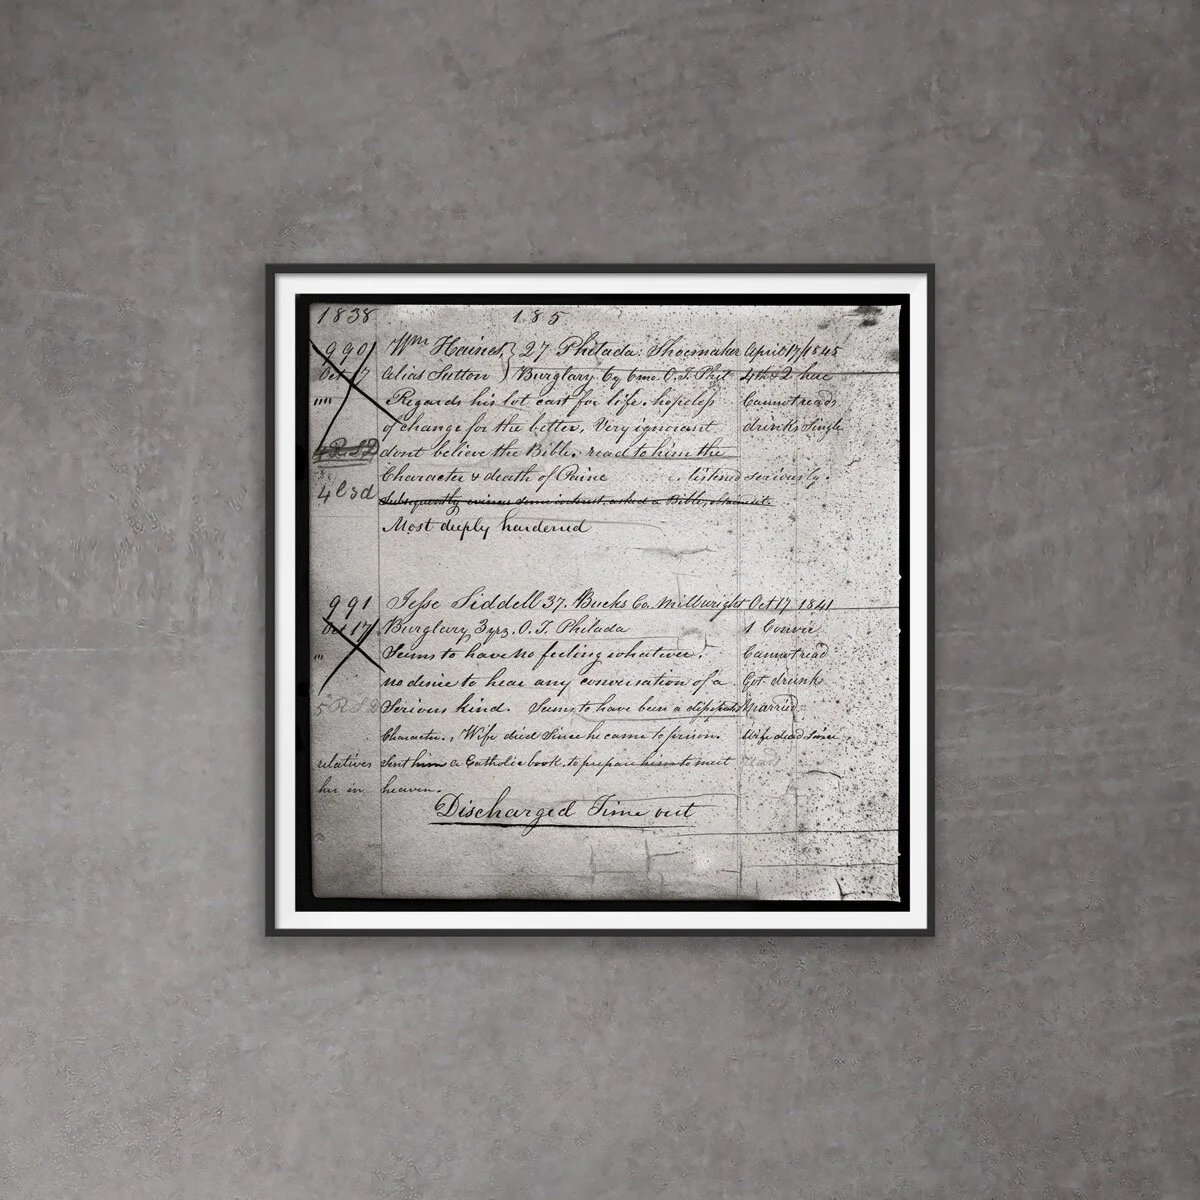 1838 185
990 Wm Haines } 27 Philada: Shoemaker April 17/1845
Oct 17 alias Sutton } Burglary 6y 6mo. O.T. Phil 4th & 2 here
"" Regards his lot cast for life, hopeless Cannot read
of change for the better, Very ignorant drinks Single
dont believe the Bible, read to him the
Character & death of Paine listened seriously.
4 C 3d Subsequently evinces some interest, asked a Bible,
Most deeply hardened
991 Jesse Siddell 37. Bucks Co. Millwright Oct 17 1841
Oct 17 Burglary 3 yrs. O.T. Philada 1 Convic
"" Seems to have no feeling whatever. Cannot read
no desire to hear any conversation of a Got drunk
5 Serious kind. Seems to have been a Married
Character., Wife died Since he came to prison Wife dead Since
relatives sent him a Catholic book, to prepare him to meet
her in heaven.
Discharged Time out